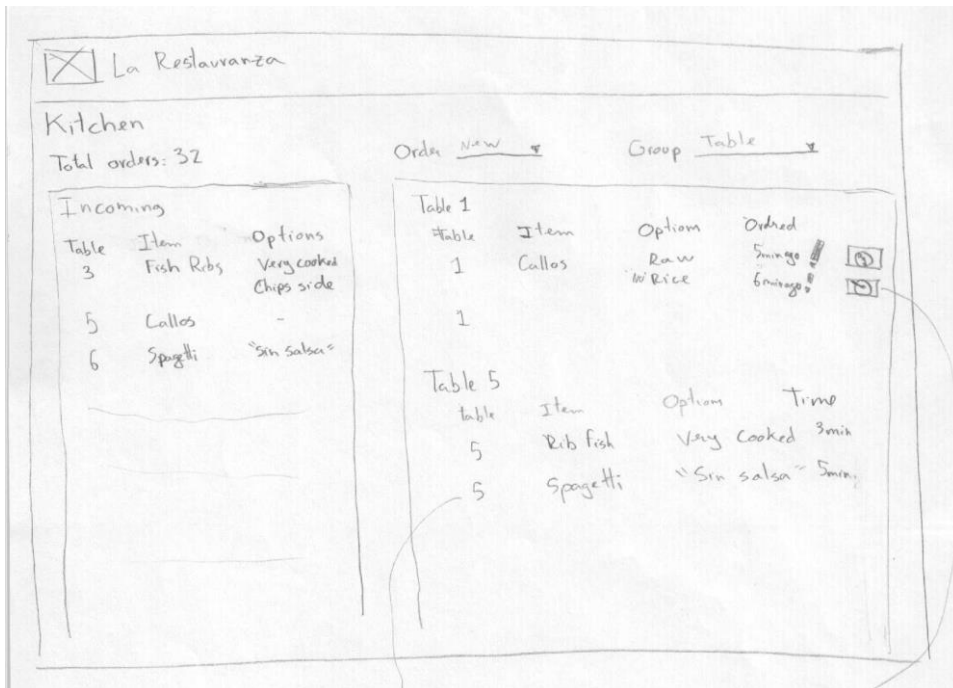 La Restauranza
Kitchen
Total orders: 32
Order New
Group Table
Incoming
Table Item Options
3 Fish Ribs Very cooked
Chips side
5 Callos -
6 Spagetti "Sin salsa"
Table 1
Table Item Options Ordred
1 Callos Raw 5min ago !
"in Rice 6min ago !
1
Table 5
table Item Options Time
5 Rib fish Very Cooked 3min
5 Spagetti "Sin salsa" 5min